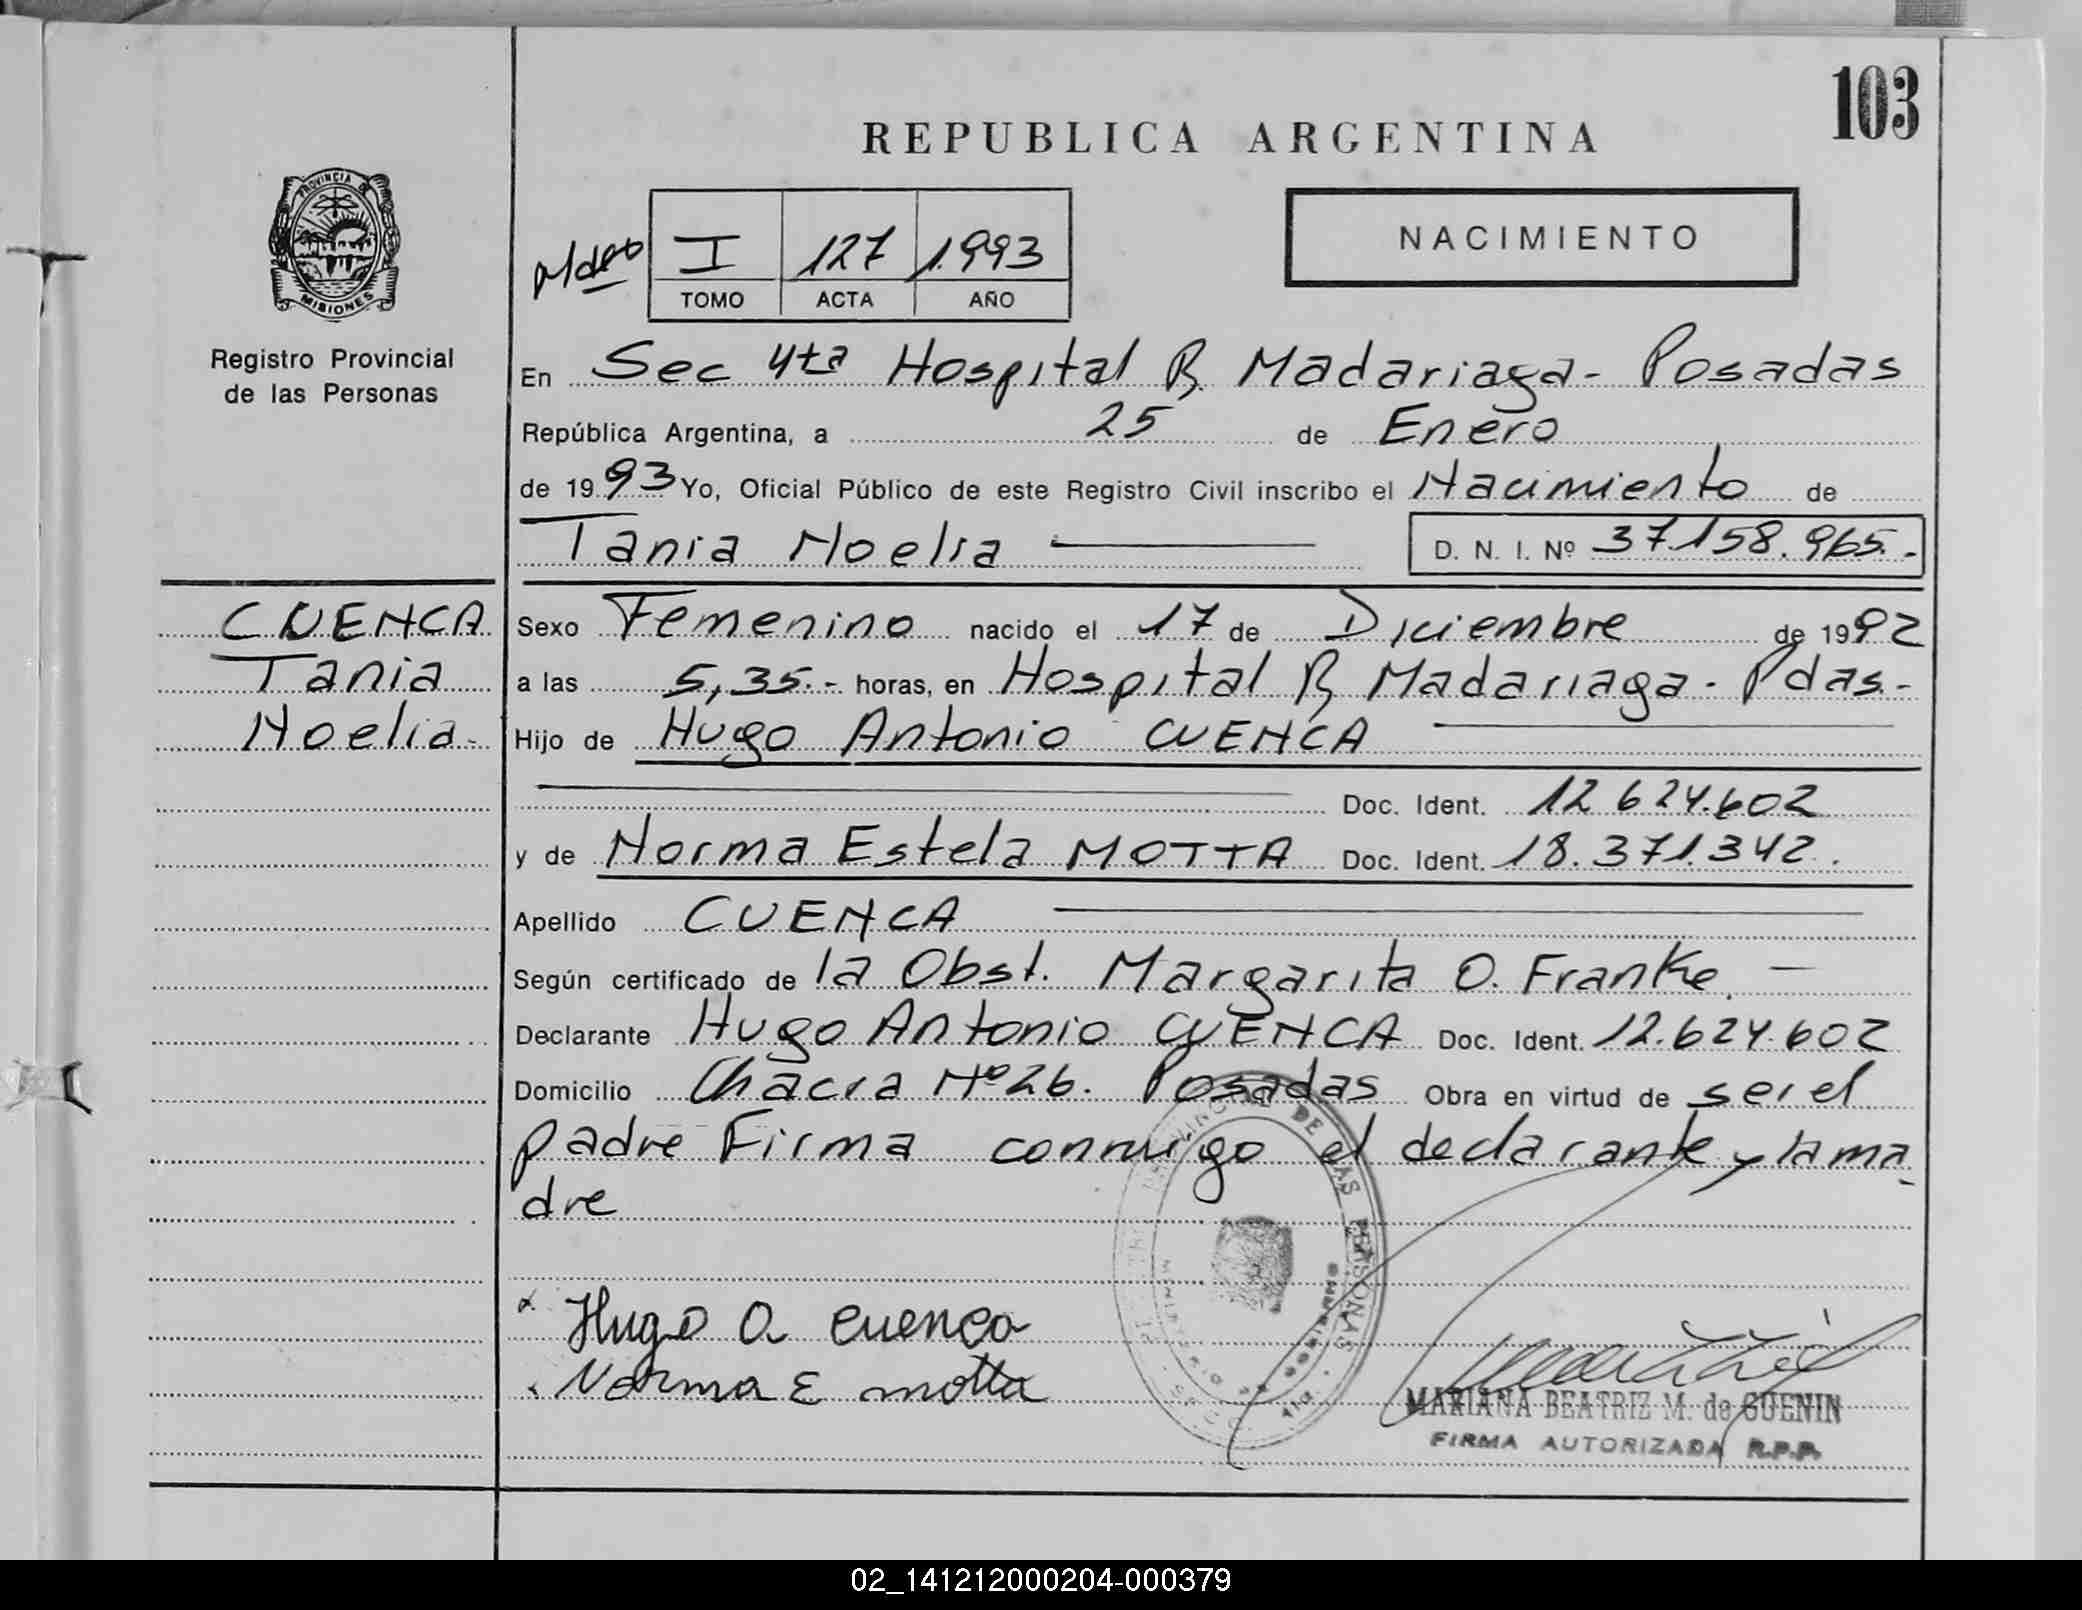 103
REPUBLICA ARGENTINA
PROVINCIA DE
MISIONES
Registro Provincial
de las Personas
NACIMIENTO
I 127 1.993
TOMO ACTA AÑO
En Sec 4ta Hospital R. Madariaga - Posadas
República Argentina, a 25 de Enero
de 1993 Yo, Oficial Público de este Registro Civil inscribo el Nacimiento de
Tania Noelia D. N. I. Nº 37.158.965.-
CUENCA
Tania
Noelia-
Sexo Femenino nacido el 17 de Diciembre de 1992
a las 5,35.- horas, en Hospital R. Madariaga - Pdas.-
Hijo de Hugo Antonio CUENCA
Doc. Ident. 12.624.602
y de Norma Estela MOTTA Doc. Ident. 18.371.342.
Apellido CUENCA
Según certificado de la Obst. Margarita O. Franke.
Declarante Hugo Antonio CUENCA Doc. Ident. 12.624.602
Domicilio Chacra Nº 26. Posadas Obra en virtud de ser el
padre Firma conmigo el declarante y la ma
dre
DE LAS PERSONAS
Hugo A Cuenca
Norma E motta
MARIANA BEATRIZ M. de GUENIN
FIRMA AUTORIZADA R.P.P.
02_141212000204-000379